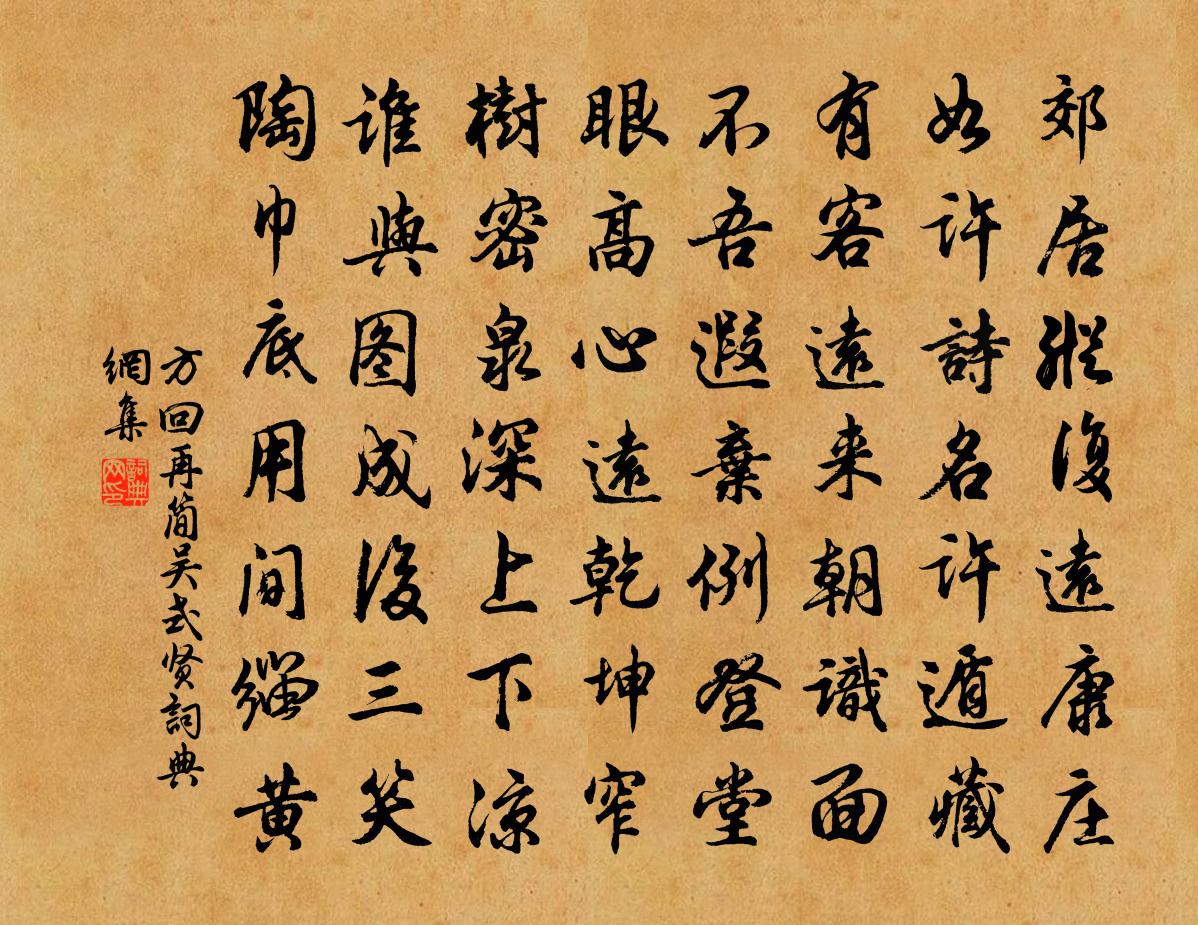 郊居縱復遠康庄
如許詩名許遁藏
有客遠来朝識面
不吾遐棄例登堂
眼高心遠乾坤窄
樹密泉深上下凉
誰與图成後三笑
陶巾底用间缁黄
方回再简吴式贤詞典
網集
詞典
网印